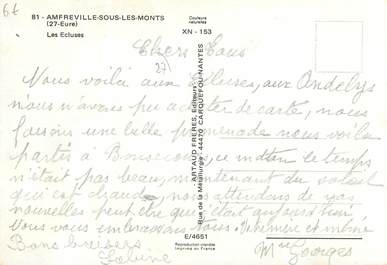 6€
81 - AMFREVILLE-SOUS-LES-MONTS
(27-Eure)
Les Ecluses
Couleurs
naturelles
XN - 153
Chers Tous
27
Nous voilà aux Ecluses, aux Andelys
nous n'avons pu acheter de carte, nous
faisons une belle promenade nous voilà
partis à ce matin le temps
n'était pas beau, maintenant du soleil
qui est chaud, nous attendons de vos
nouvelles peut être que c'était aujourd'hui
Nous vous embrassons tous. Therèse et même
Bons baisers Mme Georges
Sabine
ARTAUD FRERES, Editeurs
Rue de la Métallurgie - 44470 CARQUEFOU-NANTES
E/4651
Reproduction interdite
Imprimé en C.E.E.